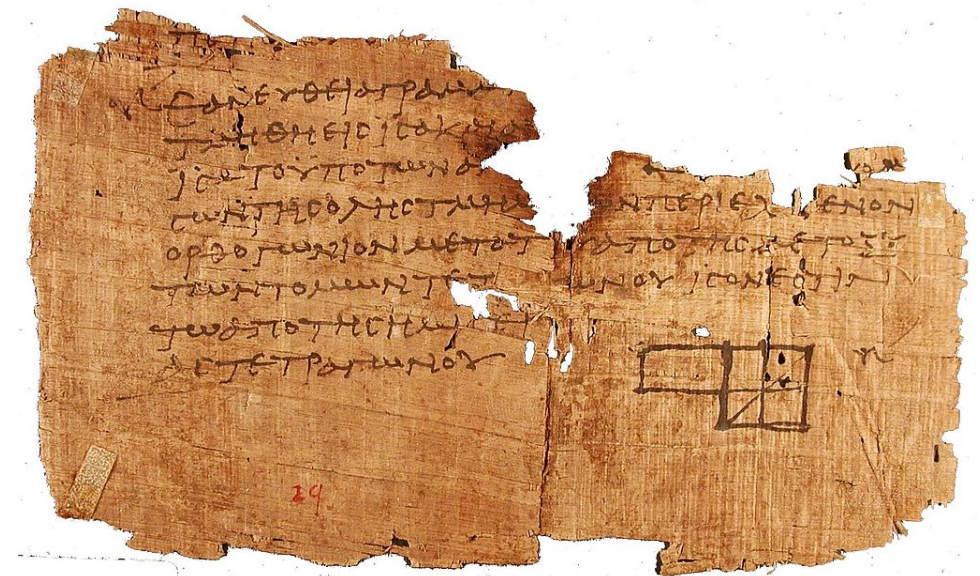 ΕΑΝ ΕΥΘΕΙΑ ΓΡΑΜΜ
ΤΜΗΘΗ ΕΙϹ ΙϹΑ ΚΑΙ Α
ΙϹΑ ΤΟ ΥΠΟ ΤΩΝ Α
ϹΩΝ ΤΗϹ ΟΛΗϹ ΤΜΗΜ ΩΝ ΠΕΡΙΕΧ ΜΕΝΟΝ
ΟΡΘΟΓΩΝΙΟΝ ΜΕΤΑ Τ ΑΠΟ ΤΗϹ ΜΕΤΑΞΥ
ΤΩΝ ΤΟΜΩΝ ΤΕΤ ΩΝΟΥ ΙϹΟΝ ΕϹΤΙΝ
ΤΩ ΑΠΟ ΤΗϹ ΗΜΙϹΕΙ
ΑϹ ΤΕΤΡΑΓΩΝΟΥ
29